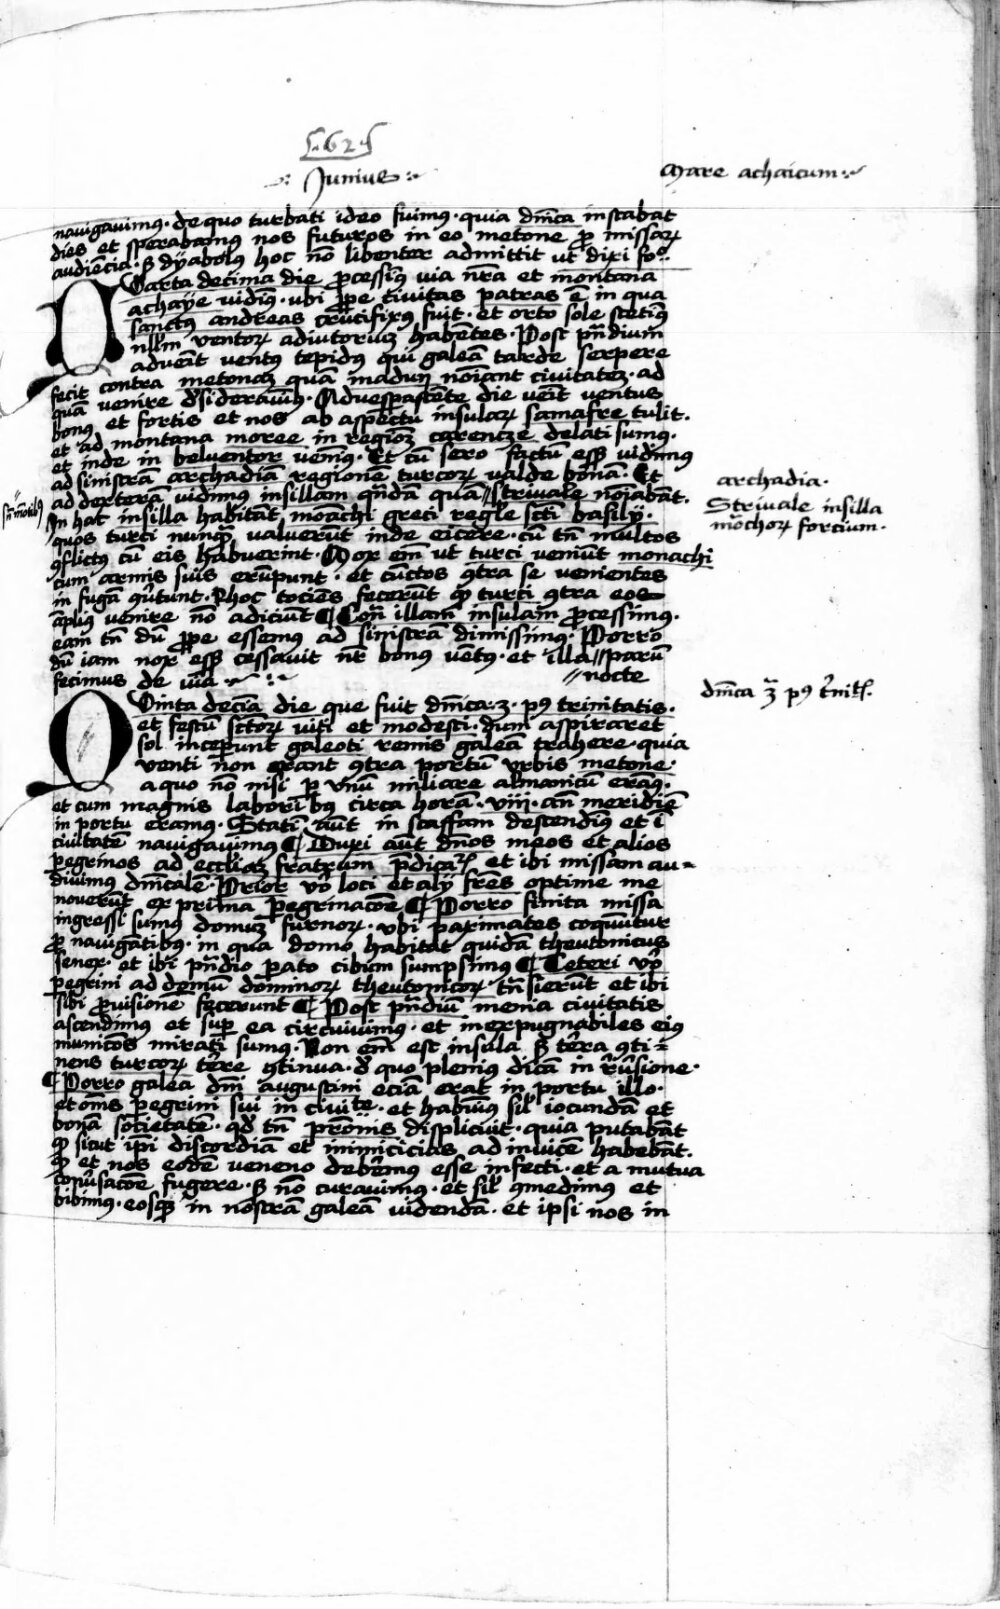 62
Junius
Mare achaicum
nauigauimꝰ · de quo turbati ideo fuimꝰ · quia dn̄ica instabat
dies et sperabamꝰ nos futuros in eo metone ꝓ missaꝝ
audiēcia · sꝫ dÿabolus hoc nō libenter admittit ut dixi fo
Quarta decima die ꝓcessimꝰ via nr̄a et montana
achaÿe vidimꝰ · ubi ꝓpe ciuitas patras ē in qua
sanctus andreas crucifixꝰ fuit · et orto sole stetimꝰ
nullum ventoꝝ adiutoriuꝫ habētes · Post pn̄dium
aduenit ventꝰ tepidꝰ qui galeā tarde serpere
fecit contra metonaꝫ quā nōiant ciuitateꝫ · ad
quā venire desiderauimꝰ · Aduesperascēte die venit ventus
bonꝰ et fortis et nos ab aspectu insulaꝝ samafre tulit ·
et ad montana moree in regioēꝫ carencze delati sumꝰ ·
et inde in belueutor venimꝰ · Et cū sero factū esset vidimus
ad sinistrā archadiā regionē turcoꝝ valde bonā · Et
ad dexterā vidimus insillam quādā quā // striuale nōiabāt ·
In hac insilla habitāt moāchi greci regule scti basilij ·
quos turci nunqꝫ valuerūt inde eicere · cū tn̄ multos
ꝯflictꝰ cū eis habuerint · Mox em̄ ut turci veniūt monachi
cum armis suis erūpunt · et cūctos ꝯtra se venientes
in fugā ꝯuertunt · Et hoc tociēs fecerūt ꝙ turci ꝯtra eos
āplius venire nō adiciūt ¶ Contra illam insulam ꝓcessimꝰ ·
eam tn̄ dū ꝓpe essemꝰ ad sinistrā dimissimꝰ · Porro
dū iam nox esset cessauit nr̄ bonꝰ vētꝰ · et illa // parū
fecimus de via // nocte
archadia ·
Striuale insilla
mōchoꝝ forcium ·
Quinta decīa die que fuit dn̄ica · 3 · pꝰ trinitatis ·
et festū sctoꝝ viti et modesti · dum aspiraret
sol inceperunt galeoti remis galeā trahere · quia
venti non erant ꝯtra portū vrbis metone ·
a quo nō nisi per vnū miliare almanicū eramꝰ ·
et cum magnis laboribꝰ circa horā · viij · an̄ meridiē
in portu eramꝰ · Statī aūt in scaffam descendimꝰ et ī
ciuitatē nauigauimus ¶ Duxi aūt dn̄os meos et alios
peregrinos ad eccliaꝫ fratrum p̄dicatoꝝ et ibi missam au=
diuimus dn̄icalē · Prior vero loci et alij frēs optime me
nouerūt ex prima peregrinacōe ¶ Porro finita missa
ingressi sumus domuꝫ furnoꝝ · vbi paximates coquūtur
ꝓ nauigātibꝰ · in qua domo habitat quidā theutonicus
senex · et ibi pn̄dio parato cibum sumpsimus ¶ Ceteri vero
peregrini ad domū dominoꝝ theutonicoꝝ trāsierūt et ibi
sibi ꝓuisionē fecerunt ¶ Post pn̄diū menia ciuitatis
ascendimus et super ea circuiuimus · et inexpugnabiles eiꝰ
municiōes mirati sumus · Non em̄ est insula sꝫ terra ꝯti=
nens turcoꝝ terre ꝯtinua · de quo plenius dicā in reuersione ·
¶ Porro galea dn̄i augustini ecia erat in portu illo ·
et om̄es peregrini sui in ciuite · et habuimꝰ siml iocundā et
bonā societatē · qd tn̄ displicuit · quia putabāt
ꝙ sicut ipi discordiā et inimicicias ad inuicē habebāt ·
ꝙ et nos eodē veneno deberemus esse infecti · et a mutua
conuersacōe fugere · sꝫ nō curauimus · et siml ꝯmedimꝰ et
bibimꝰ · eosqꝫ in nostrā galeā videndā · et ipsi nos in
dn̄ica 3a pꝰ trinit.